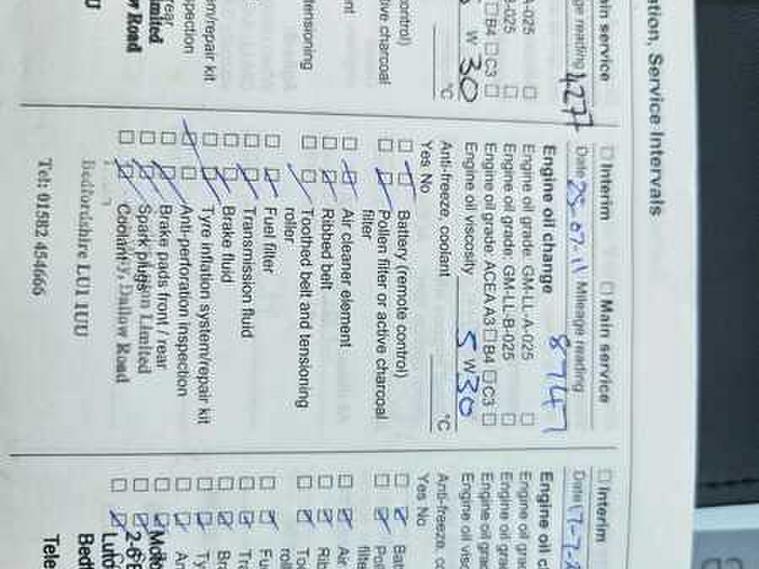 ation, Service Intervals
ain service
reading 4277
A-025
B-025
B4 C3
W 30
°C
control)
ive charcoal
nt
tensioning
em/repair kit
spection
rear
Limited
Road
U
Interim Main service
Date 25-07-11 Mileage reading
Engine oil change 8747
Engine oil grade GM-LL-A-025
Engine oil grade GM-LL-B-025
Engine oil grade ACEA A3 B4 C3
Engine oil viscosity 5 W 30
Anti-freeze, coolant °C
Yes No
Battery (remote control)
Pollen filter or active charcoal
filter
Air cleaner element
Ribbed belt
Toothed belt and tensioning
roller
Fuel filter
Transmission fluid
Brake fluid
Tyre inflation system/repair kit
Anti-perforation inspection
Brake pads front / rear
Spark plugs Limited
Coolant Dallow Road
Bedfordshire LU1 1UU
Tel: 01582 454666
Interim
Date 17-7-
Engine oil c
Engine oil grad
Engine oil gra
Engine oil gra
Engine oil visc
Anti-freeze, co
Yes No
Batt
Poll
filte
Air
Rib
Too
roll
Fu
Tra
Br
Ty
An
Luto
Bedf
Tele